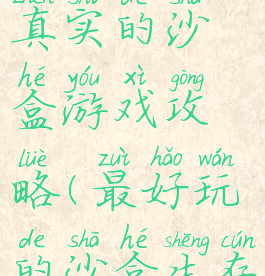 真实的沙
hé yóu xì gōng
盒游戏攻
lüè zuì hǎo wán
略(最好玩
de shā hé shēng cún
的沙盒生存